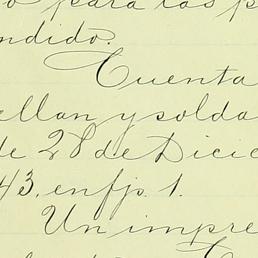 o para los p
ndido.
Cuenta
ellan y solda
de 28 de Dicie
43, en fjs. 1.
Un impre